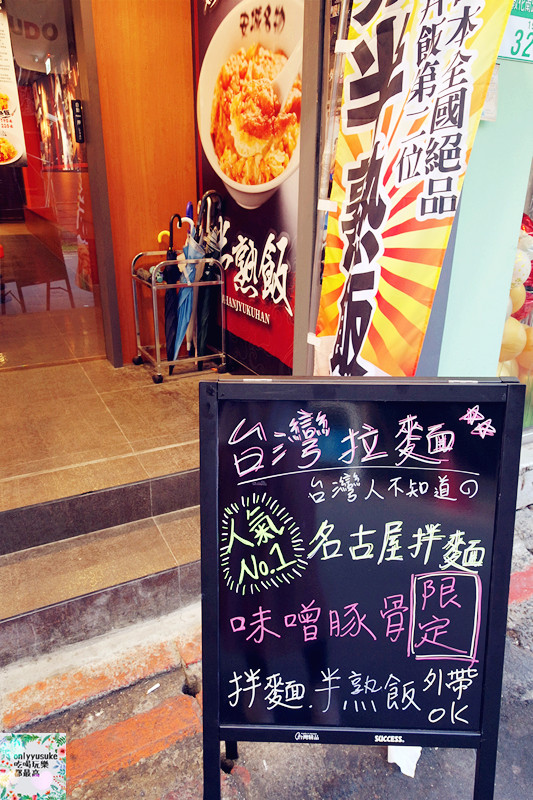 本全國絕品
丼飯第二位
半熟飯
半熟飯
HANJYUKUHAN
32
台灣拉麵
台灣人不知道の
人氣
No.1
名古屋拌麵
味噌豚骨
限定
拌麵.半熟飯
外帶
OK
SUCCESS.
onlyyusuke
吃喝玩樂
都最高